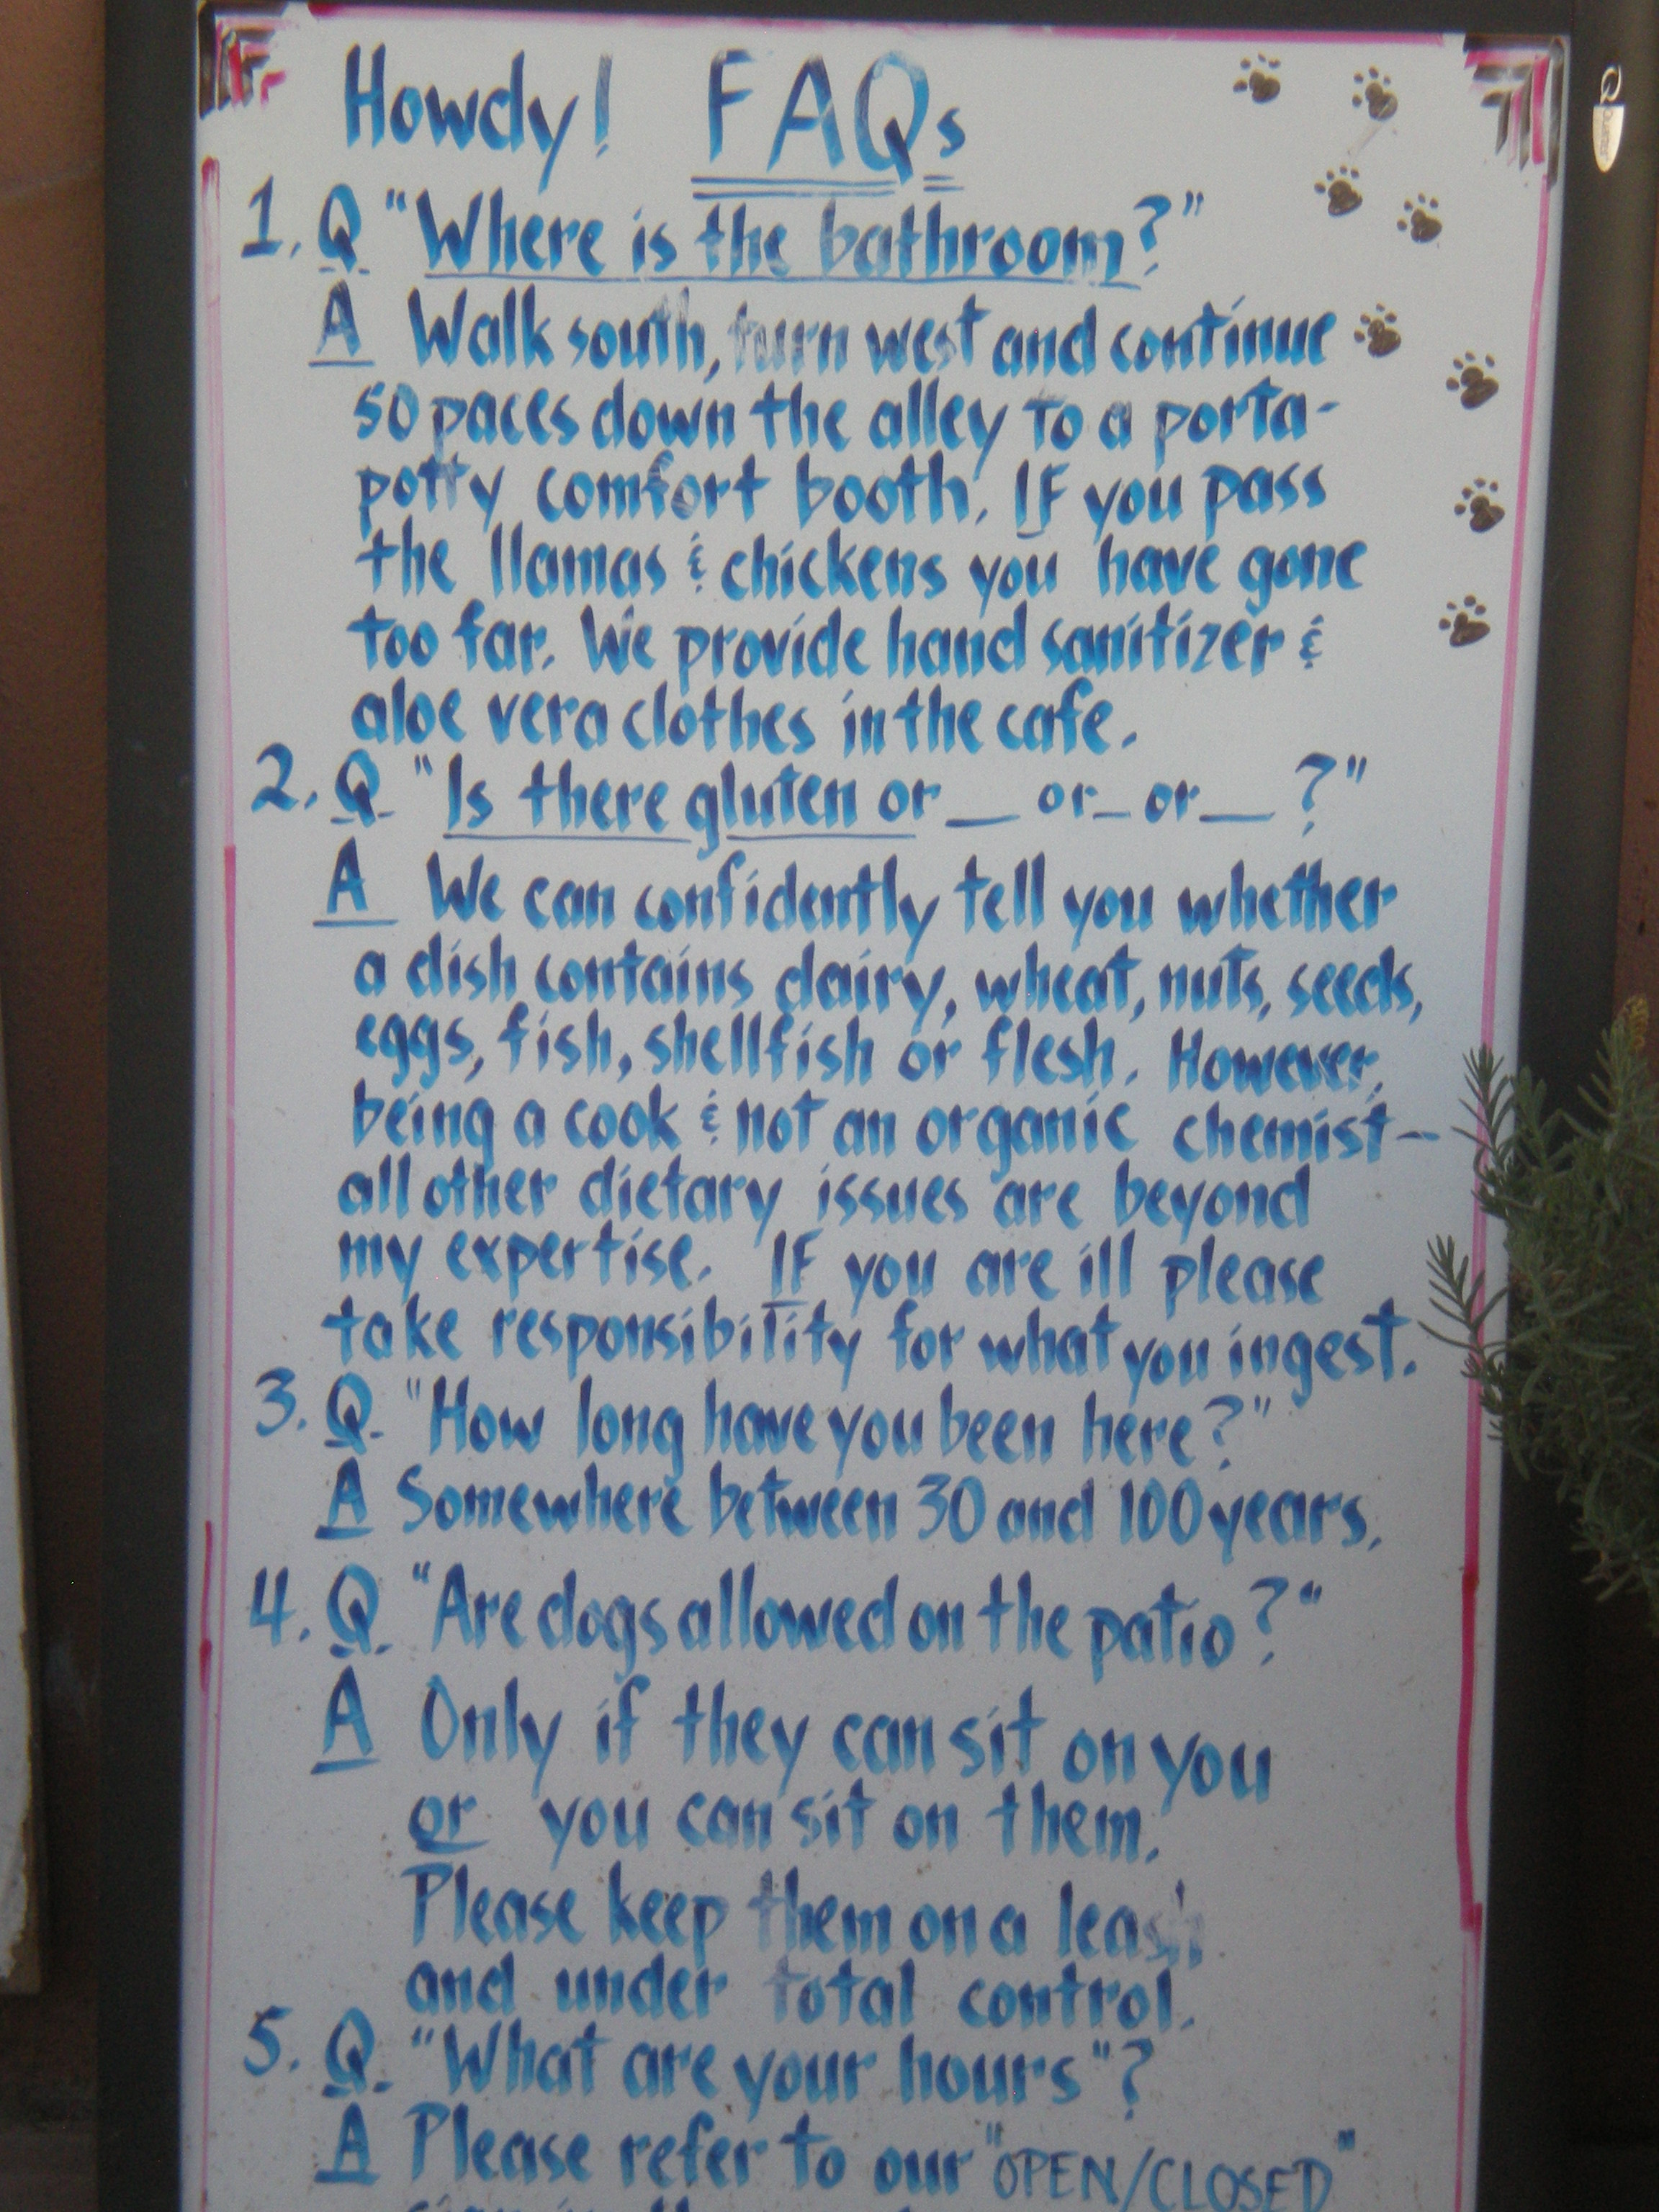 Howdy! FAQs
1. Q "Where is the bathroom?"
A Walk south, turn west and continue
50 paces down the alley to a porta-
potty comfort booth. IF you pass
the llamas & chickens you have gone
too far. We provide hand sanitizer &
aloe vera clothes in the cafe.
2. Q "Is there gluten or __ or _ or __ ?"
A We can confidently tell you whether
a dish contains dairy, wheat, nuts, seeds,
eggs, fish, shellfish or flesh. However,
being a cook & not an organic chemist-
all other dietary issues are beyond
my expertise. IF you are ill please
take responsibility for what you ingest.
3. Q. "How long have you been here?"
A Somewhere between 30 and 100 years.
4. Q. "Are dogs allowed on the patio?"
A Only if they can sit on you
or you can sit on them.
Please keep them on a leash
and under total control.
5. Q. "What are your hours"?
A Please refer to our "OPEN/CLOSED"
Quartet